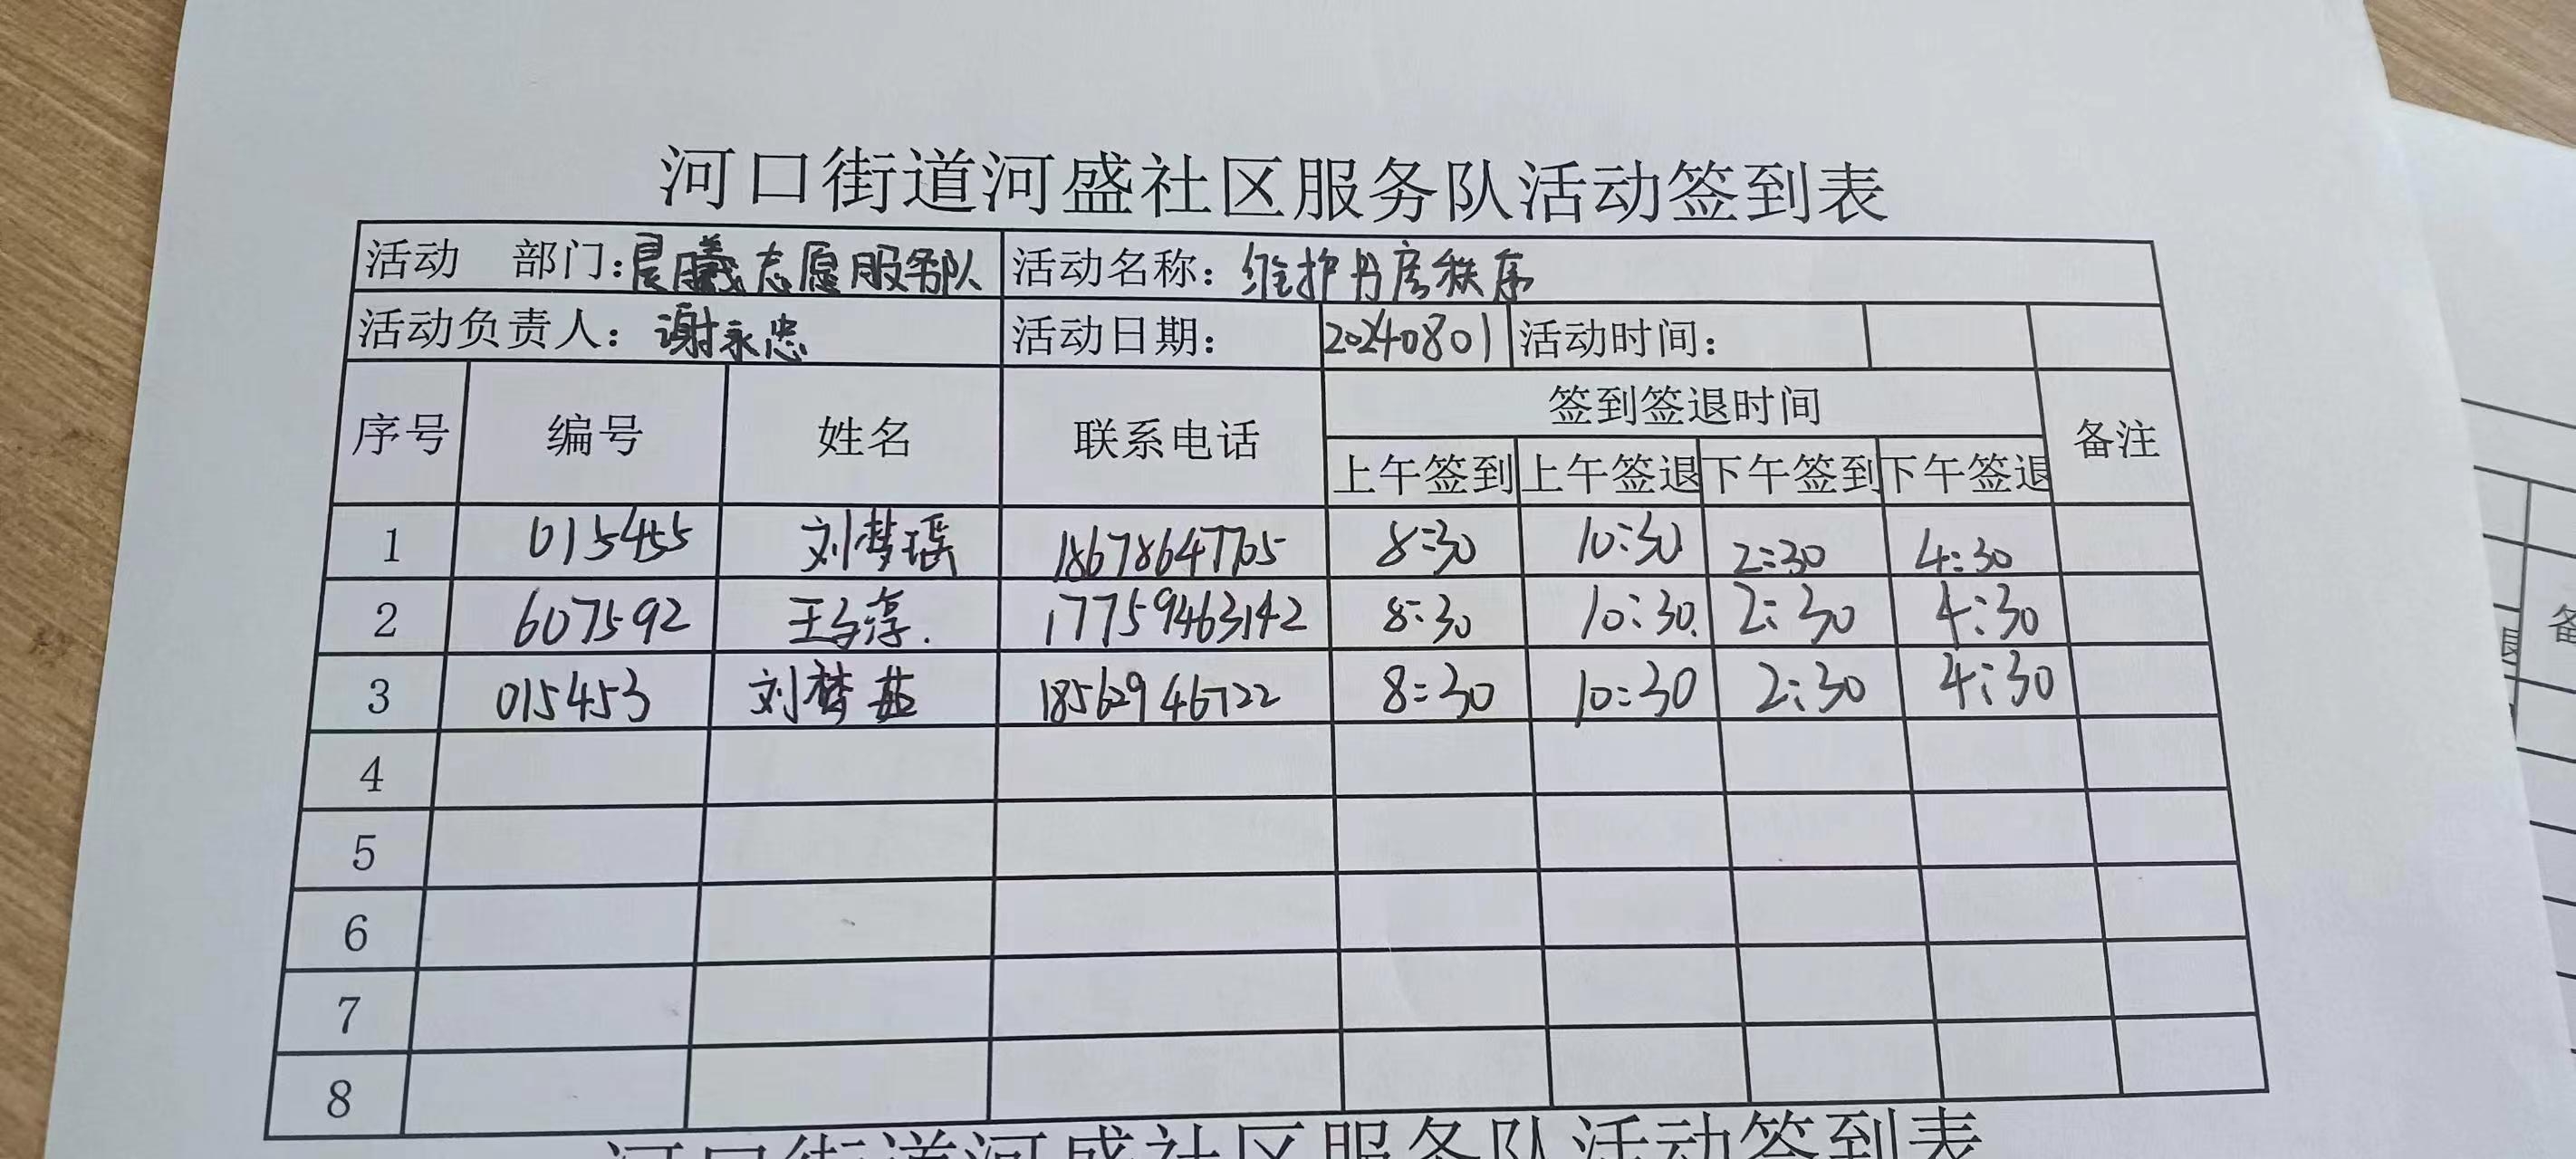 河口街道河盛社区服务队活动签到表
活动 部门:晨曦志愿服务队 活动名称:维护丹房秩序
活动负责人:谢永忠 活动日期: 20240801 活动时间:
序号 编号 姓名 联系电话 签到签退时间 备注
上午签到 上午签退 下午签到 下午签退
1 015455 刘梦瑶 18678647705 8:30 10:30 2:30 4:30
2 607592 王 淳. 17759463142 8:30 10:30. 2:30 4:30
3 015453 刘梦茹 18562946722 8:30 10:30 2:30 4:30
4
5
6
7
8
河口街道河盛社区服务队活动签到表
备